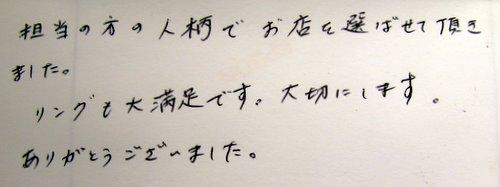 担当の方の人柄でお店を選ばせて頂き
ました。
リングも大満足です。大切にします。
ありがとうございました。